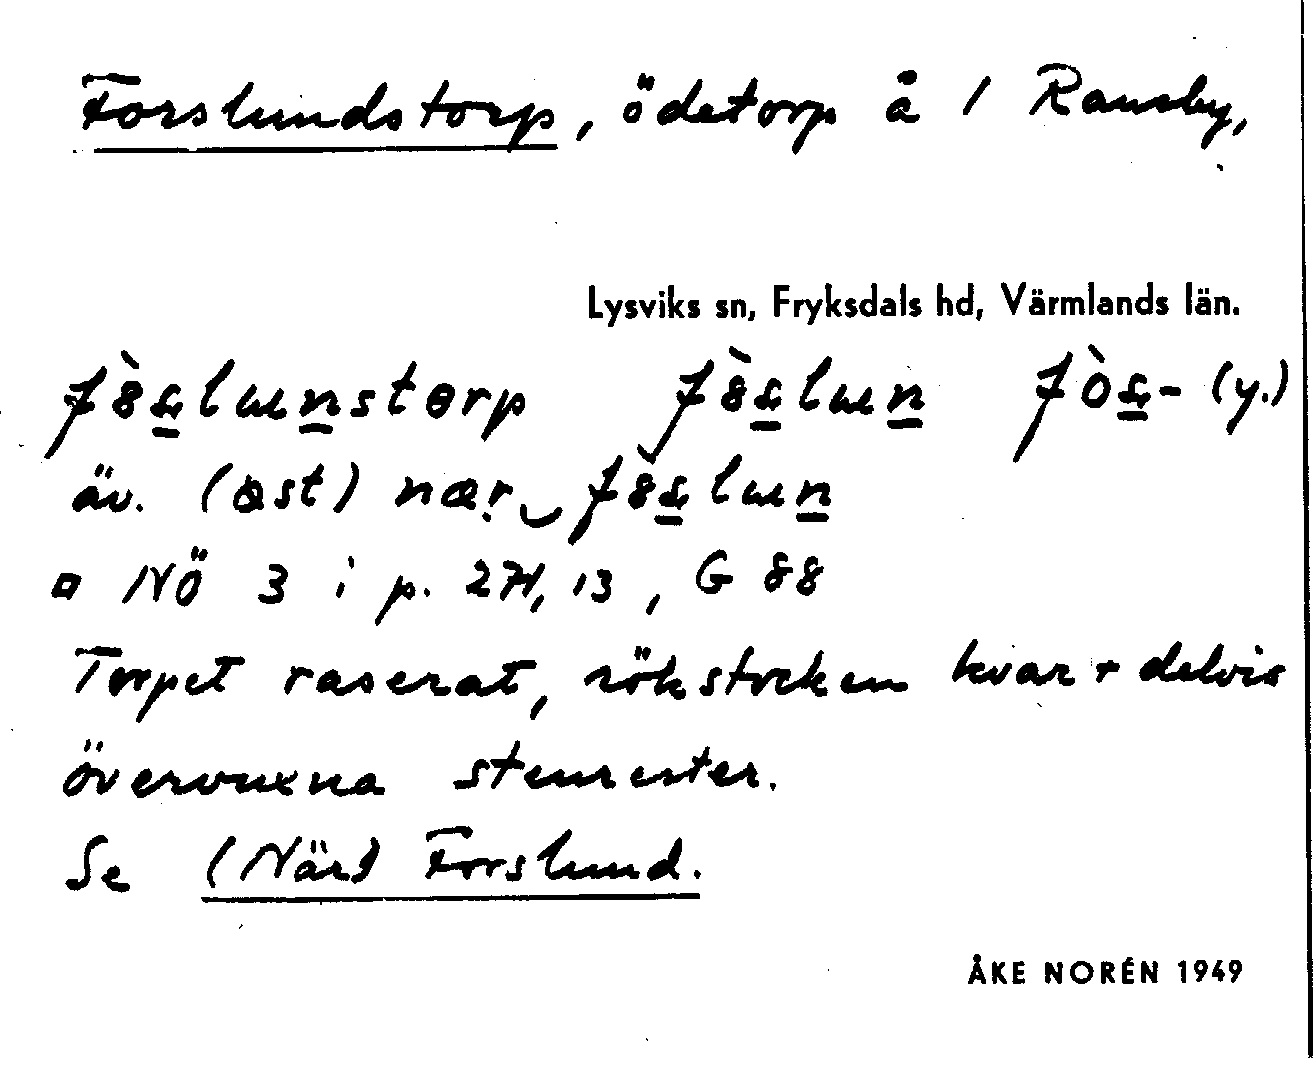 Forslundstorp, ödetorp å 1 Ransby,
Lysviks sn, Fryksdals hd, Värmlands län.
(y.)
äv. (ost) nær
¤ NÖ 3 i p. 271, 13, G 88
Torpet raserat, rökstocken kvar + delvis
övervuxna stenrester.
Se (När) Forslund.
ÅKE NORÉN 1949